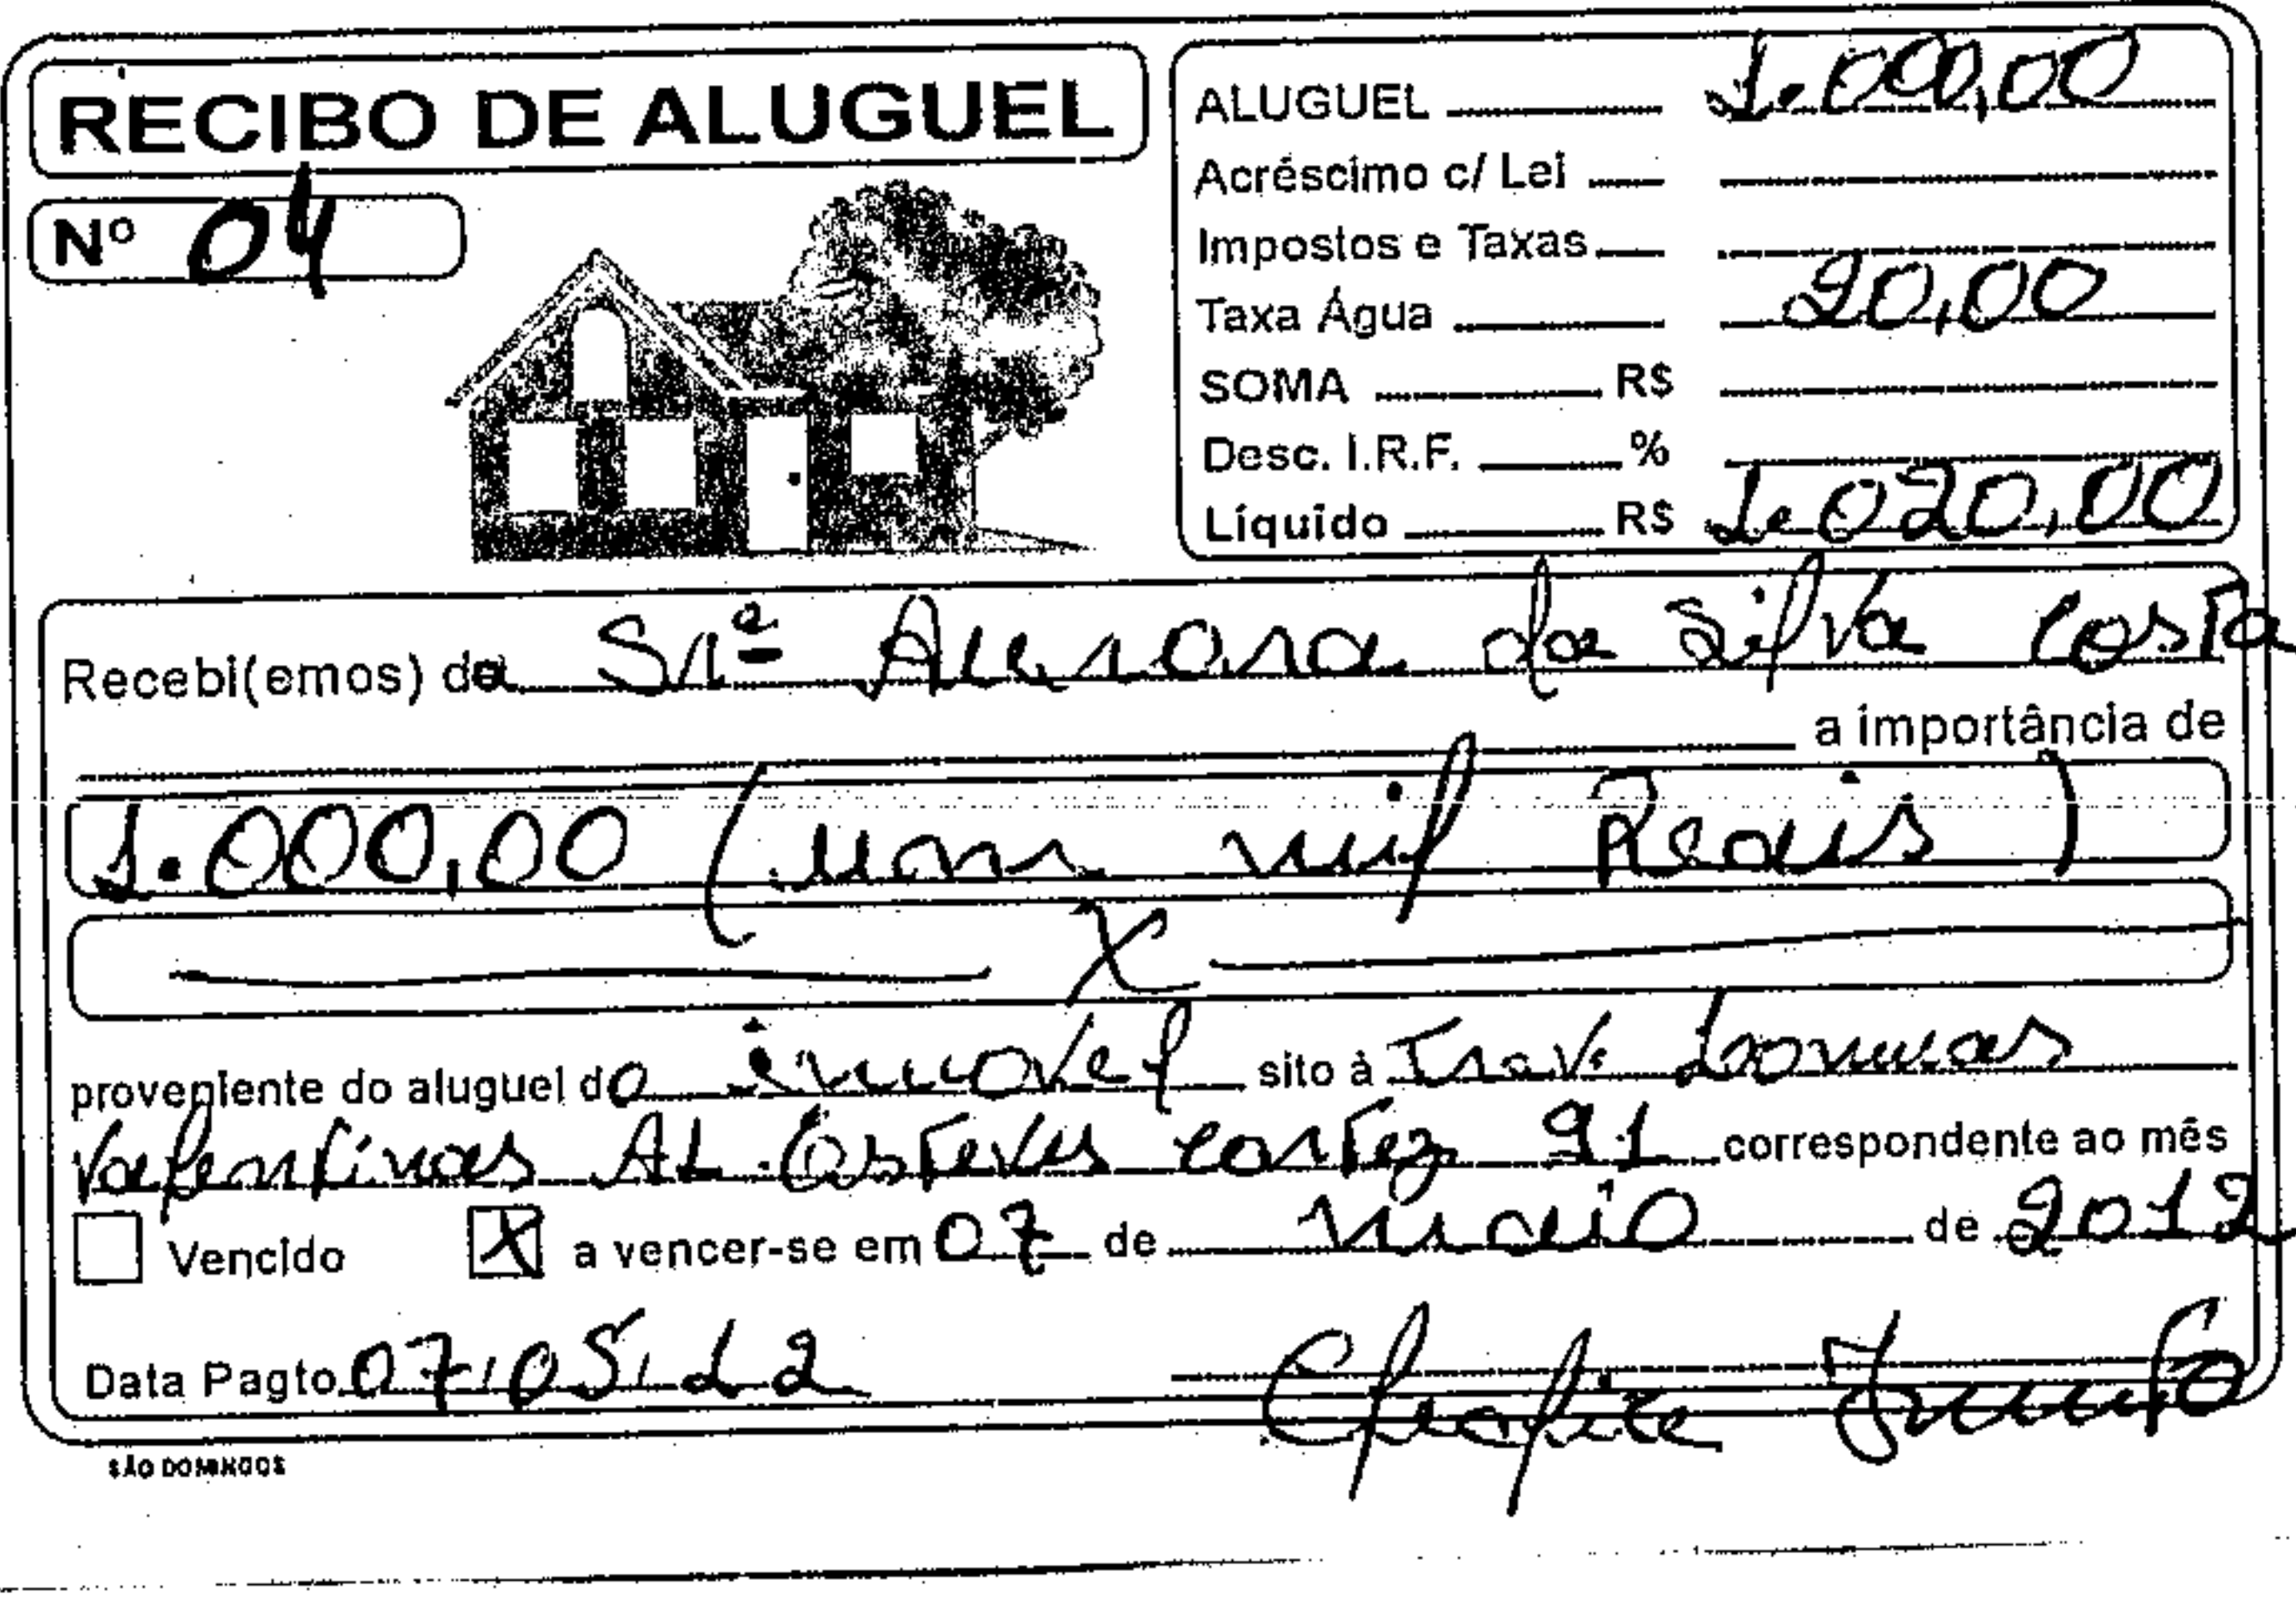 RECIBO DE ALUGUEL
Nº 04
ALUGUEL 1.000,00
Acréscimo c/ Lei
Impostos e Taxas
Taxa Água 20,00
SOMA R$
Desc. I.R.F. %
Líquido R$ 1.020,00
Recebi(emos) da Srª Aurora da Silva Costa
a importância de
1.000,00 (um mil Reais)
X
proveniente do aluguel do imovel sito à Trav.
Valentinas AL. Esteves Cortez 91 correspondente ao mês
Vencido X a vencer-se em 07 de maio de 2012
Data Pagto 07/05/12
SÃO DOMINGOS